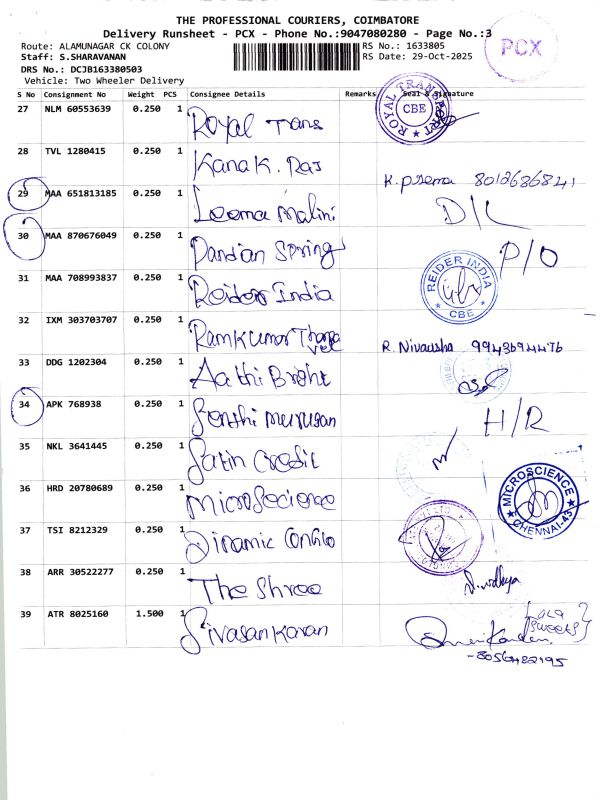 THE PROFESSIONAL COURIERS, COIMBATORE
Delivery Runsheet - PCX - Phone No.:9047080280 - Page No.:3
Route: ALAMUNAGAR CK COLONY
RS No.: 1633805
PCX
Staff: S.SHARAVANAN
RS Date: 29-Oct-2025
DRS No.: DCJB163380503
Vehicle: Two Wheeler Delivery
S No Consignment No Weight PCS Consignee Details Remarks Seal & Signature
27 NLM 60553639 0.250 1 Royal Trans ROYAL TRANSPORT CBE
28 TVL 1280415 0.250 1 Kanak. Raj K. prema 8012686841
29 MAA 651813185 0.250 1 Leema Malini D/L
30 MAA 870676049 0.250 1 Pandian Spring P/O
31 MAA 708993837 0.250 1 Reider India REIDER INDIA CBE
32 IXM 303703707 0.250 1 Ramkumar Thangavel R. Nivausha 9943694476
33 DDG 1202304 0.250 1 Aathi Bright
34 APK 768938 0.250 1 Senthi Murugan H/R
35 NKL 3641445 0.250 1 Satin Credit
36 HRD 20780689 0.250 1 Microsecience MICROSCIENCE CHENNAI-43
37 TSI 8212329 0.250 1 Dinamic Contlo
38 ARR 30522277 0.250 1 The Shree
39 ATR 8025160 1.500 1 Sivasankaran
sweets
-8056482195